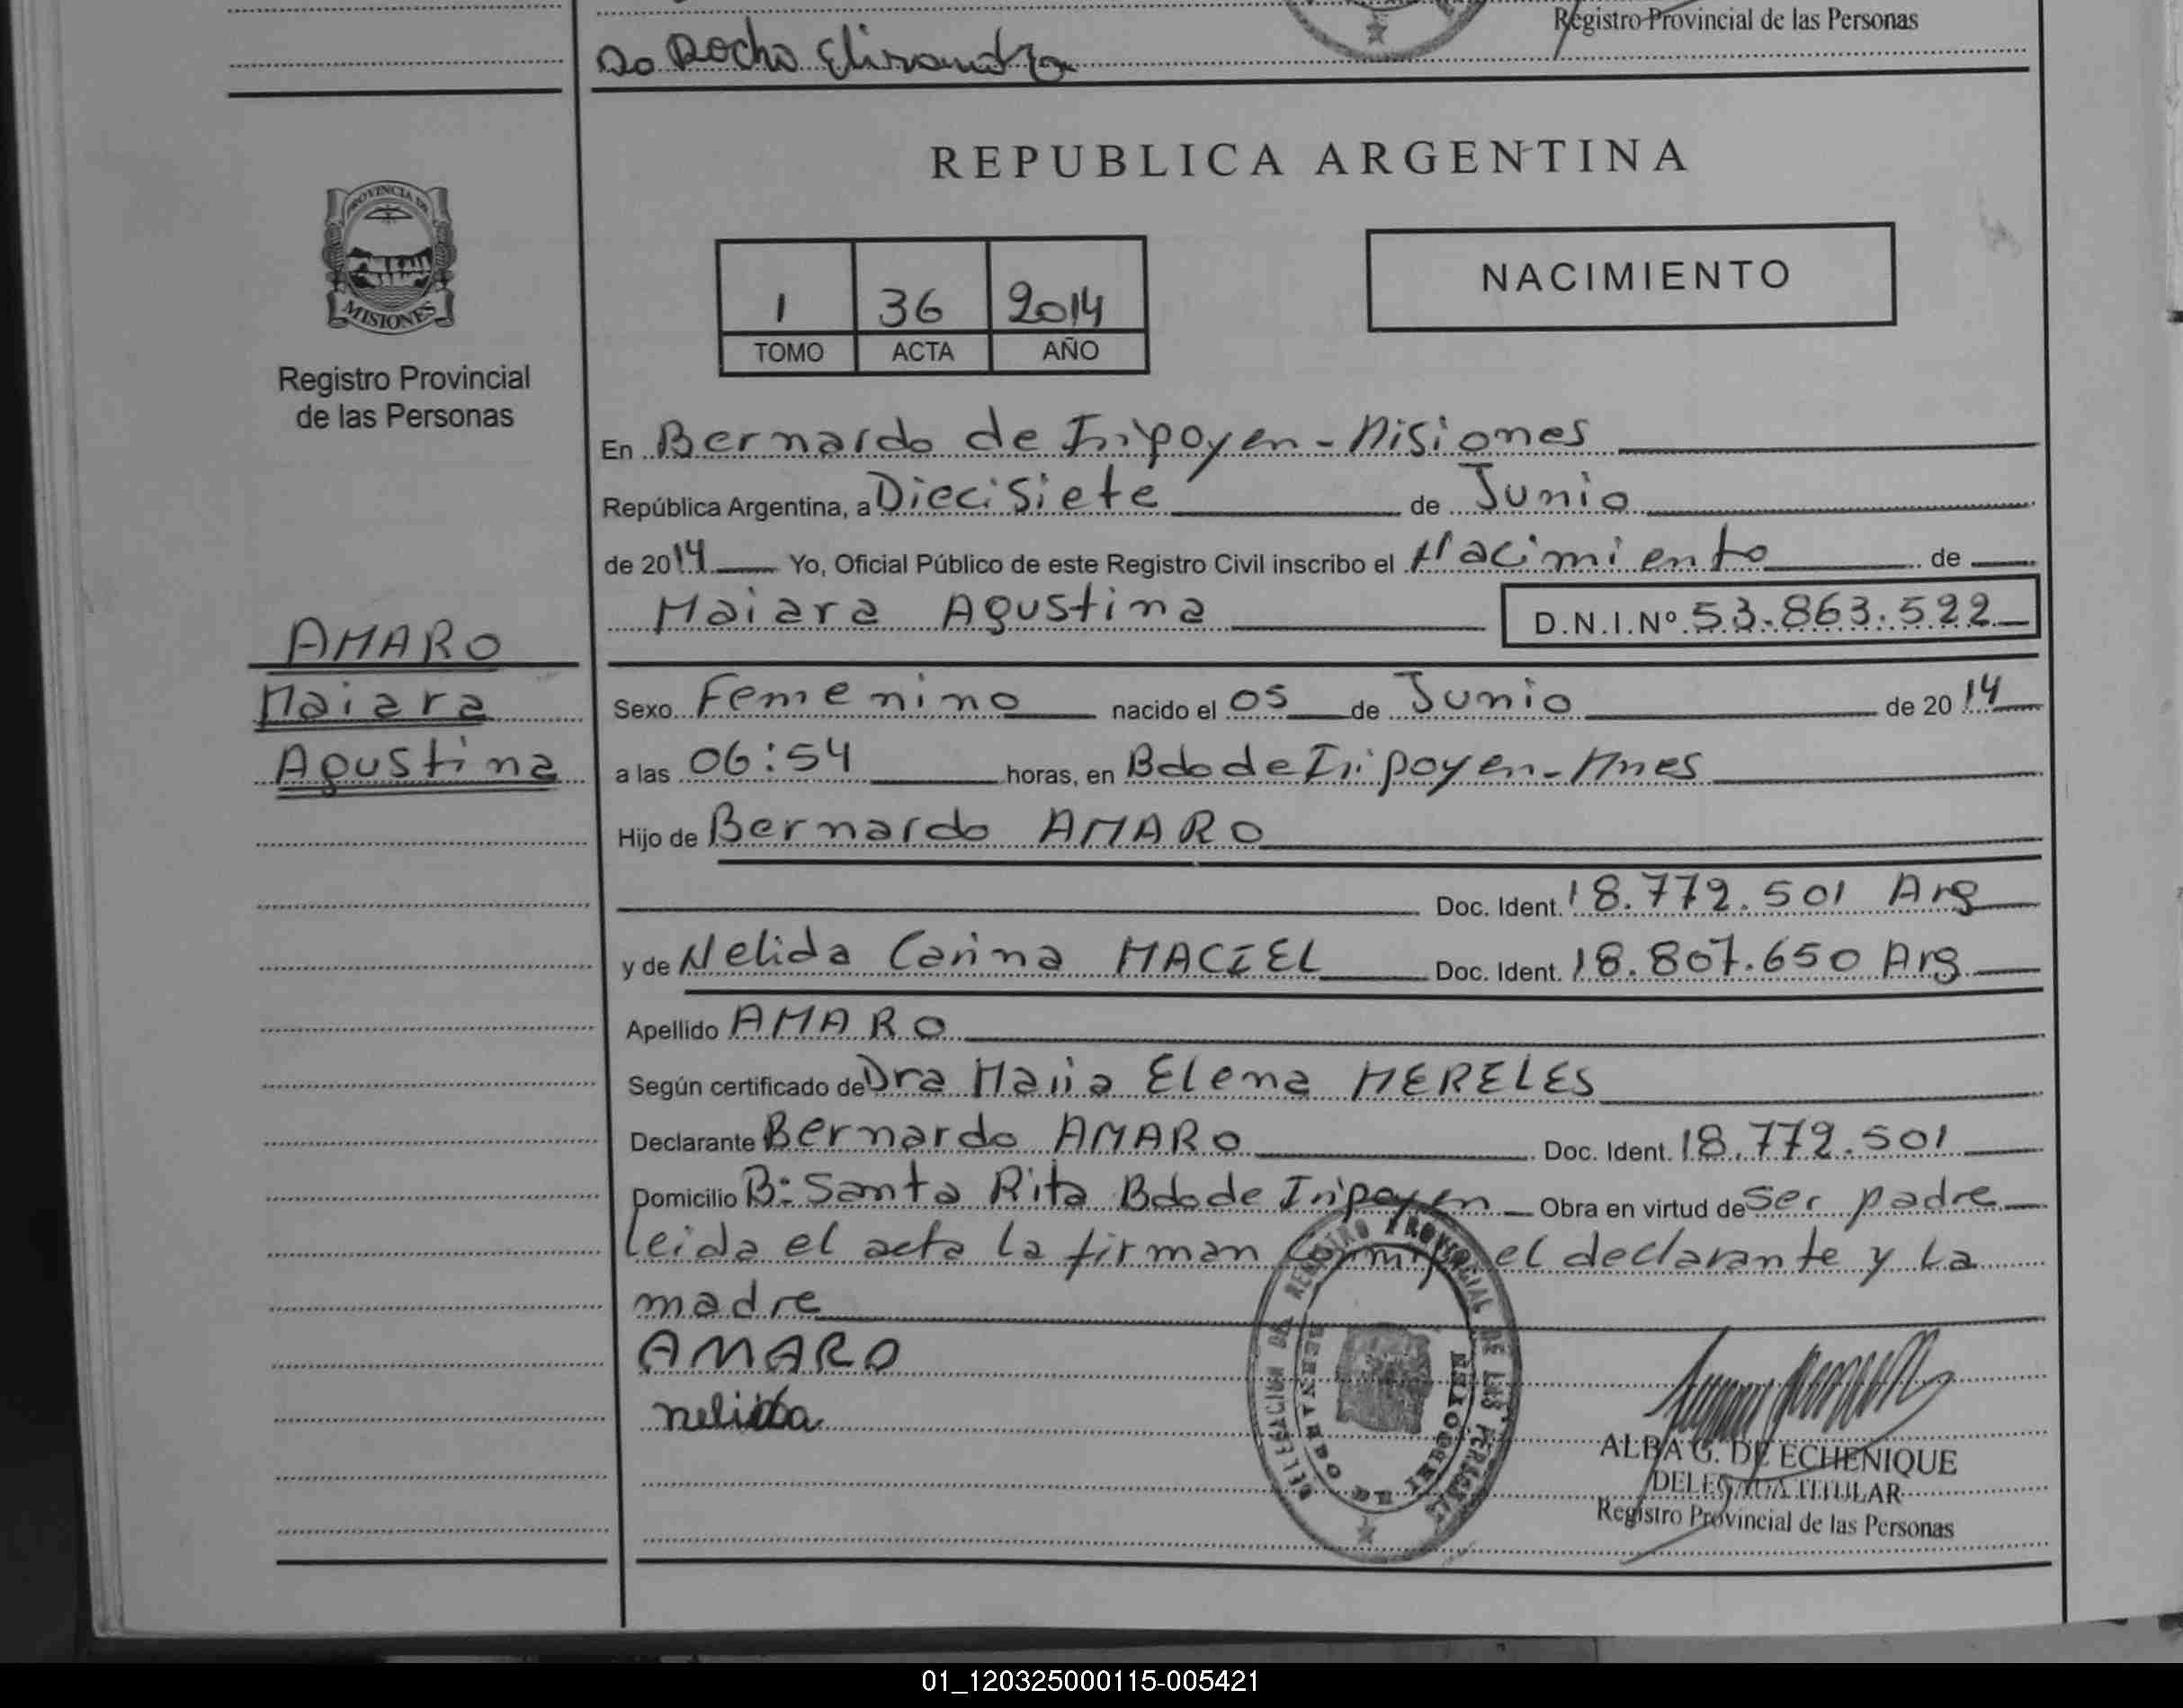 Registro Provincial de las Personas
Da Rocha Elisandra
REPUBLICA ARGENTINA
PROVINCIA DE
MISIONES
Registro Provincial
de las Personas
1 36 2014
TOMO ACTA AÑO
NACIMIENTO
En Bernardo de Irigoyen - Misiones
República Argentina, a Diecisiete de Junio
de 2014 Yo, Oficial Público de este Registro Civil inscribo el Nacimiento de
Maiara Agustina D.N.I.Nº 53.863.522
AMARO
Maiara
Agustina
Sexo Femenino nacido el 05 de Junio de 2014
a las 06:54 horas, en Bdo de Irigoyen - Mnes
Hijo de Bernardo AMARO
Doc. Ident. 18.772.501 Arg
y de Nelida Carina MACIEL Doc. Ident. 18.807.650 Arg
Apellido AMARO
Según certificado de Dra Maria Elena MERELES
Declarante Bernardo AMARO Doc. Ident. 18.772.501
Domicilio Bº Santa Rita Bdo de Irigoyen Obra en virtud de ser padre
leida el acta la firman conmigo el declarante y la
madre
AMARO
nelida
DELEGACION DEL REGISTRO PROVINCIAL DE LAS PERSONAS
BERNARDO DE IRIGOYEN
ALBA G. DE ECHENIQUE
DELEGADA TITULAR
Registro Provincial de las Personas
01_120325000115-005421